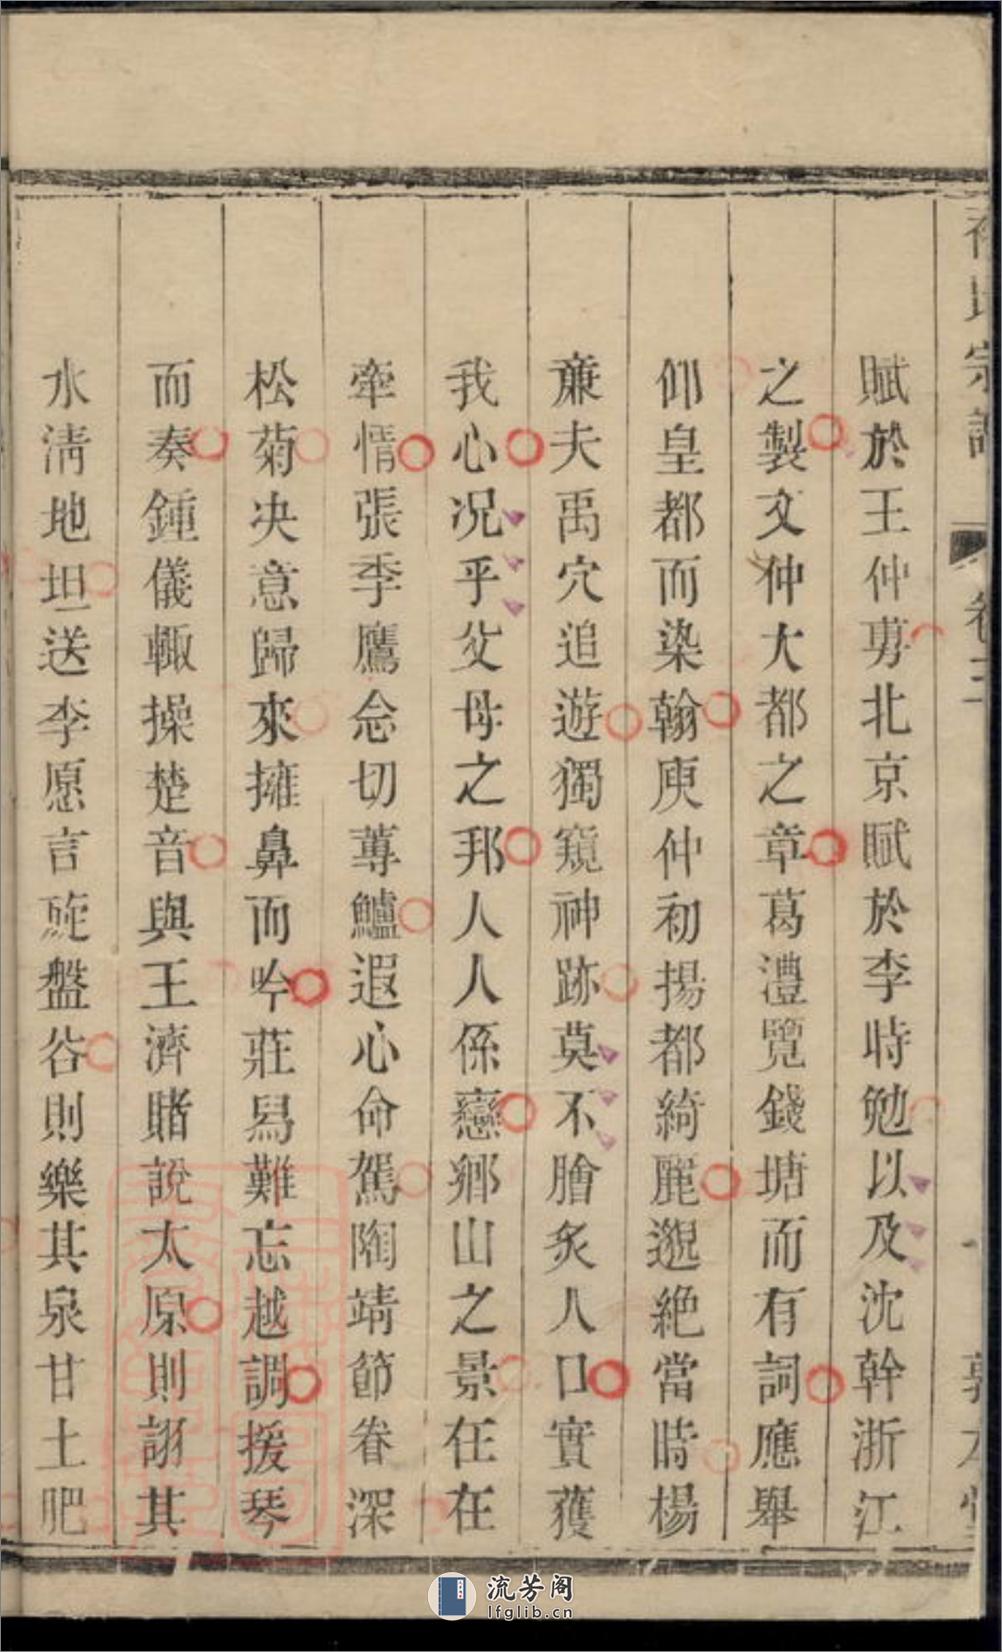 宗譜
卷三
賦於王仲旉北京賦於李時勉以及沈幹浙江
之製文仲大都之章葛澧覽錢塘而有詞應舉
仰皇都而染翰庾仲初揚都綺麗邈絶當時楊
亷夫禹穴追遊獨窺神跡莫不膾炙人口實獲
我心况乎父母之邦人人係戀鄉山之景在在
牽情張季鷹念切蓴鱸遐心命駕陶靖節眷深
松菊决意歸來擁鼻而吟莊舄難忘越調援琴
而奏鍾儀輙操楚音與王濟賭說太原則詡其
水淸地坦送李愿言旋盤谷則樂其泉甘土肥
流芳阁
lfglib.cn